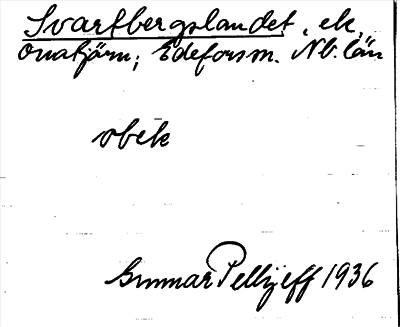 Svartbergslandet, ek,
Onatjärn; Edeforsm. Nb. län
obek
Gunnar Pellijeff 1936